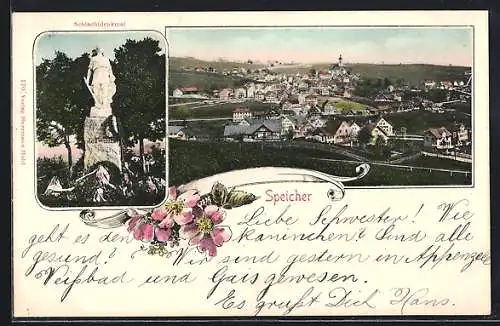 Schlachtdenkmal
Speicher
Liebe Schwester! Wie
geht es den Kaninchen? Sind alle
gesund? Wir sind gestern in Appenzell
Weißbad und Gais gewesen.
Es grüßt Dich Hans.